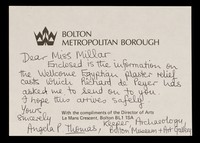 BOLTON
METROPOLITAN BOROUGH
Dear Miss Millar
Enclosed is the information on
the Wellcome Egyptian plaster relief
casts which Richard de Peyer has
asked me to send on to you
I hope this arrives safely!
Yours
Sincerely
With the compliments of the Director of Arts
Le Mans Crescent, Bolton BL1 1SA
Angela P Thomas, Keeper Archaeology,
Bolton Museum + Art Gallery